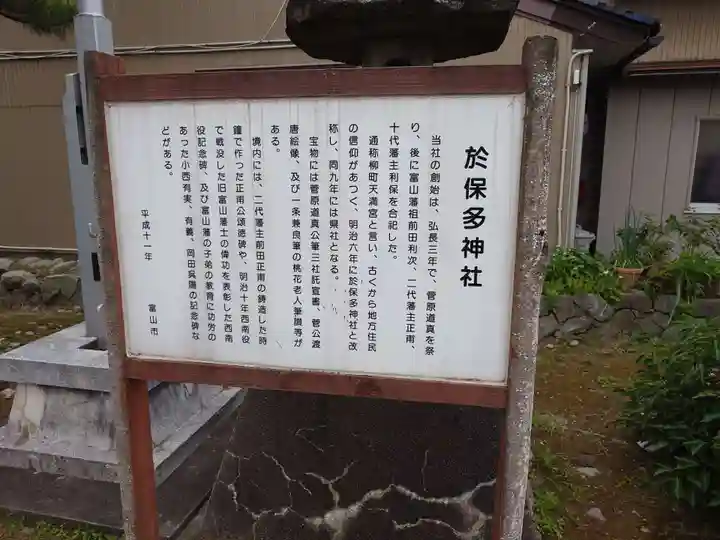 於保多神社
当社の創始は、弘長三年で、菅原道真を祭
り、後に富山藩祖前田利次、二代藩主正甫、
十代藩主利保を合祀した。
通称柳町天満宮と言い、古くから地方住民
の信仰があつく、明治六年に於保多神社と改
称し、同九年には県社となる。
宝物には菅原道真公筆三社託宣書、菅公渡
唐絵像、及び一条兼良筆の桃花老人筆譜等が
ある。
境内には、二代藩主前田正甫の鋳造した時
鐘で作った正甫公頌徳碑や、明治十年西南役
で戦没した旧富山藩士の偉功を表彰した西南
役記念碑、及び富山藩の子弟の教育に功労の
あった小西有実、有義、岡田呉陽の記念碑な
どがある。
平成十一年
富山市